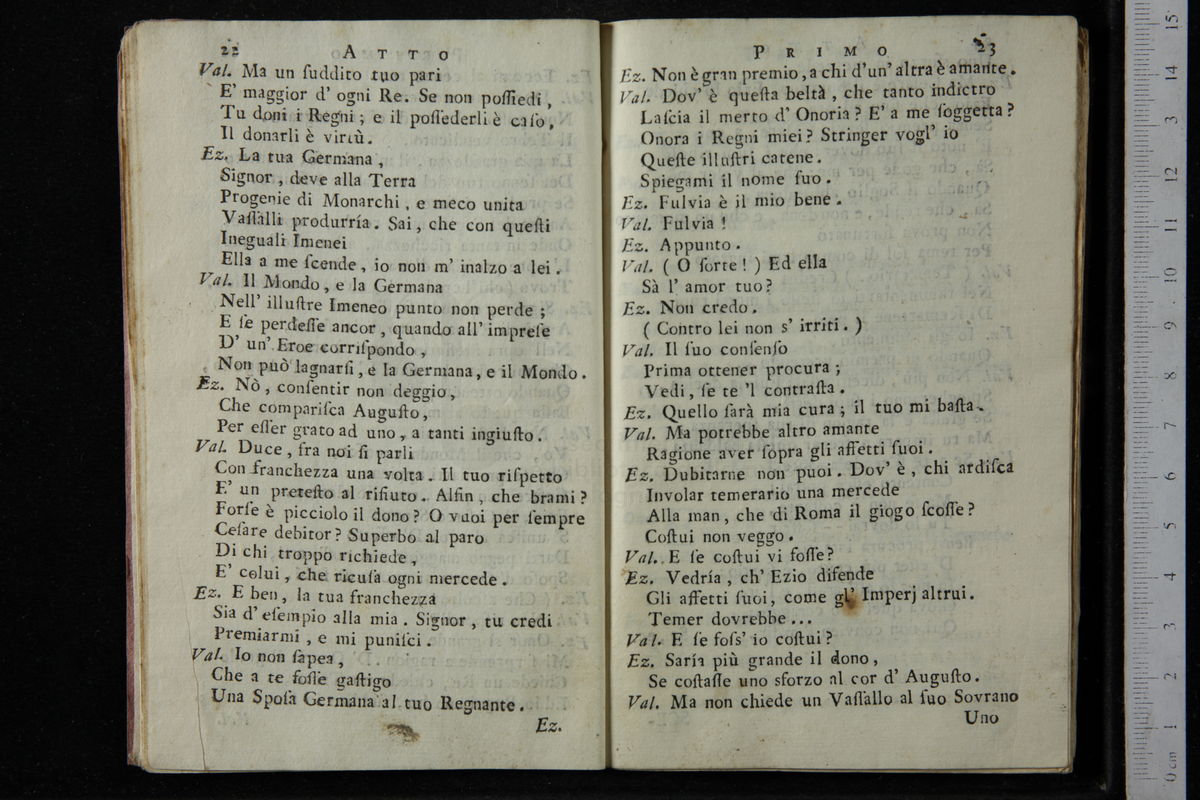 22 ATTO
Val. Ma un ſuddito tuo pari
E' maggior d' ogni Re. Se non poſſiedi,
Tu doni i Regni; e il poſſederli è caſo,
Il donarli è virtù.
Ez. La tua Germana,
Signor, deve alla Terra
Progenie di Monarchi, e meco unita
Vaſſalli produrría. Sai, che con queſti
Ineguali Imenei
Ella a me ſcende, io non m' inalzo a lei.
Val. Il Mondo, e la Germana
Nell' illuſtre Imeneo punto non perde;
E ſe perdeſſe ancor, quando all' impreſe
D' un' Eroe corriſpondo,
Non può lagnarſi, e la Germana, e il Mondo.
Ez. Nò, conſentir non deggio,
Che compariſca Auguſto,
Per eſſer grato ad uno, a tanti ingiuſto.
Val. Duce, fra noi ſi parli
Con franchezza una volta. Il tuo riſpetto
E' un preteſto al rifiuto. Alfin, che brami?
Forſe è picciolo il dono? O vuoi per ſempre
Ceſare debitor? Superbo al paro
Di chi troppo richiede,
E' colui, che ricuſa ogni mercede.
Ez. E ben, la tua franchezza
Sia d' eſempio alla mia. Signor, tu credi
Premiarmi, e mi puniſci.
Val. Io non ſapea,
Che a te foſſe gaſtigo
Una Spoſa Germana al tuo Regnante.
Ez.
PRIMO 23
Ez. Non è gran premio, a chi d'un' altra è amante.
Val. Dov' è queſta beltà, che tanto indietro
Laſcia il merto d' Onoria? E' a me ſoggetta?
Onora i Regni miei? Stringer vogl' io
Queſte illuſtri catene.
Spiegami il nome ſuo.
Ez. Fulvia è il mio bene.
Val. Fulvia!
Ez. Appunto.
Val. (O ſorte!) Ed ella
Sà l' amor tuo?
Ez. Non credo.
(Contro lei non s' irriti.)
Val. Il ſuo conſenſo
Prima ottener procura;
Vedi, ſe te 'l contraſta.
Ez. Quello ſarà mia cura; il tuo mi baſta.
Val. Ma potrebbe altro amante
Ragione aver ſopra gli affetti ſuoi.
Ez. Dubitarne non puoi. Dov' è, chi ardiſca
Involar temerario una mercede
Alla man, che di Roma il giogo ſcoſſe?
Coſtui non veggo.
Val. E ſe coſtui vi foſſe?
Ez. Vedría, ch' Ezio difende
Gli affetti ſuoi, come gl' Imperj altrui.
Temer dovrebbe...
Val. E ſe foſs' io coſtui?
Ez. Saría più grande il dono,
Se coſtaſſe uno sforzo al cor d' Auguſto.
Val. Ma non chiede un Vaſſallo al ſuo Sovrano
Uno
0 cm 1 2 3 4 5 6 7 8 9 10 11 12 13 14 15